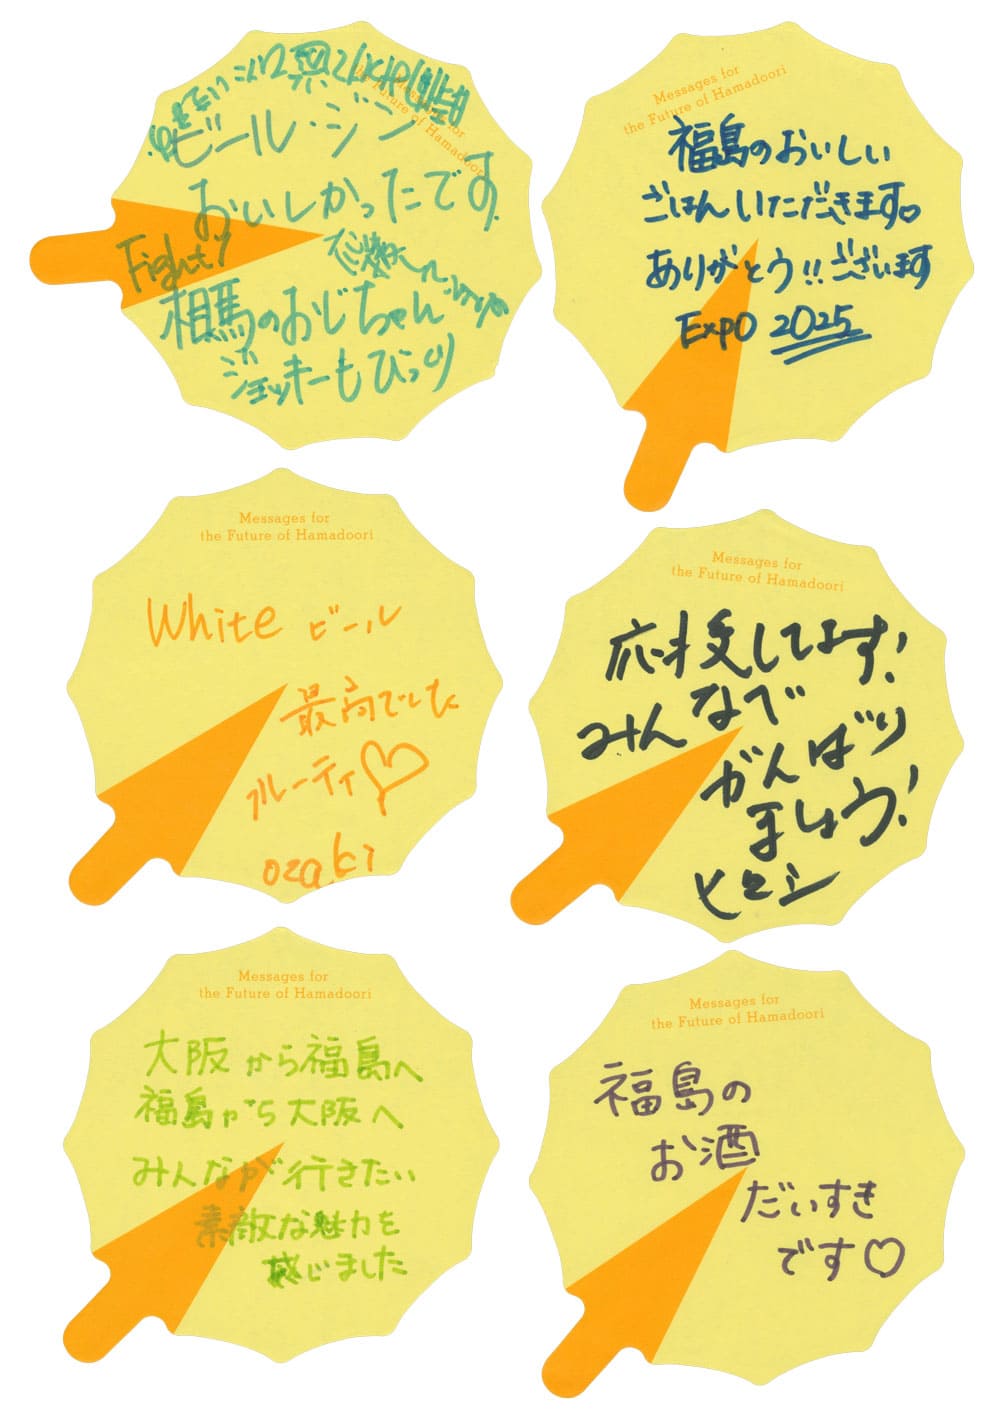 Messages for
the Future of Hamadoori
ビール・ジン
おいしかったです。
Fight!
相馬のおじちゃん
ジョッキーもびっくり
Messages for
the Future of Hamadoori
福島のおいしい
ごはんいただきます♡
ありがとう!!ございます
EXPO 2025
Messages for
the Future of Hamadoori
White ビール
最高でした
フルーティ♡
ozaki
Messages for
the Future of Hamadoori
応援してます!
みんなで
がんばり
ましょう!
ヒロシ
Messages for
the Future of Hamadoori
大阪から福島へ
福島から大阪へ
みんなが行きたい
素敵な魅力を
感じました
Messages for
the Future of Hamadoori
福島の
お酒
だいすき
です♡